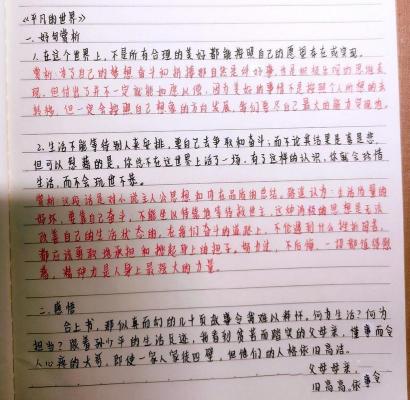 《平凡的世界》
一、好句赏析
1.在这个世界上,不是所有合理的美好都能按照自己的愿望存在或实现。
赏析:为了自己的梦想奋斗和拼搏那自然是件好事,也是积极乐观的思想表
现。但付出了并不一定就能如愿以偿,因为美好的事情不是按照个人所想的去
转移,但一定会按照自己想象的方向发展,我们要尽自己最大的能力实现它。
2.生活不能等待别人来安排,要自己去争取和奋斗;而不论其结果是喜是悲,
但可以慰藉的是,你总不在这世界上活了一场。有了这样的认识,你就会珍惜
生活,而不会玩世不恭。
赏析:这段话是对小说主人公思想如何在品质的总结。路遥认为:生活质量的
好坏,要靠自己奋斗,不能坐以待毙地等待救世主,这种消极的思想是无法
改善自己的生活状态的。在我们奋斗的道路上,不论遇到什么挫折困苦,
都应该勇敢地承担和挑起肩上的担子。努力过,不后悔,一切都值得慰
藉,精神力是人身上最强大的力量。
二、感悟
合上书,那似真而幻的几十页故事令我难以释怀。何为生活?何为
担当?跟着孙少平的生活足迹,我看到贫苦而踏实的父母亲,懂事而令
人心疼的大哥,即使一家人家徒四壁,但他们的人格依旧高洁。
父母母亲,
旧高高。依事令